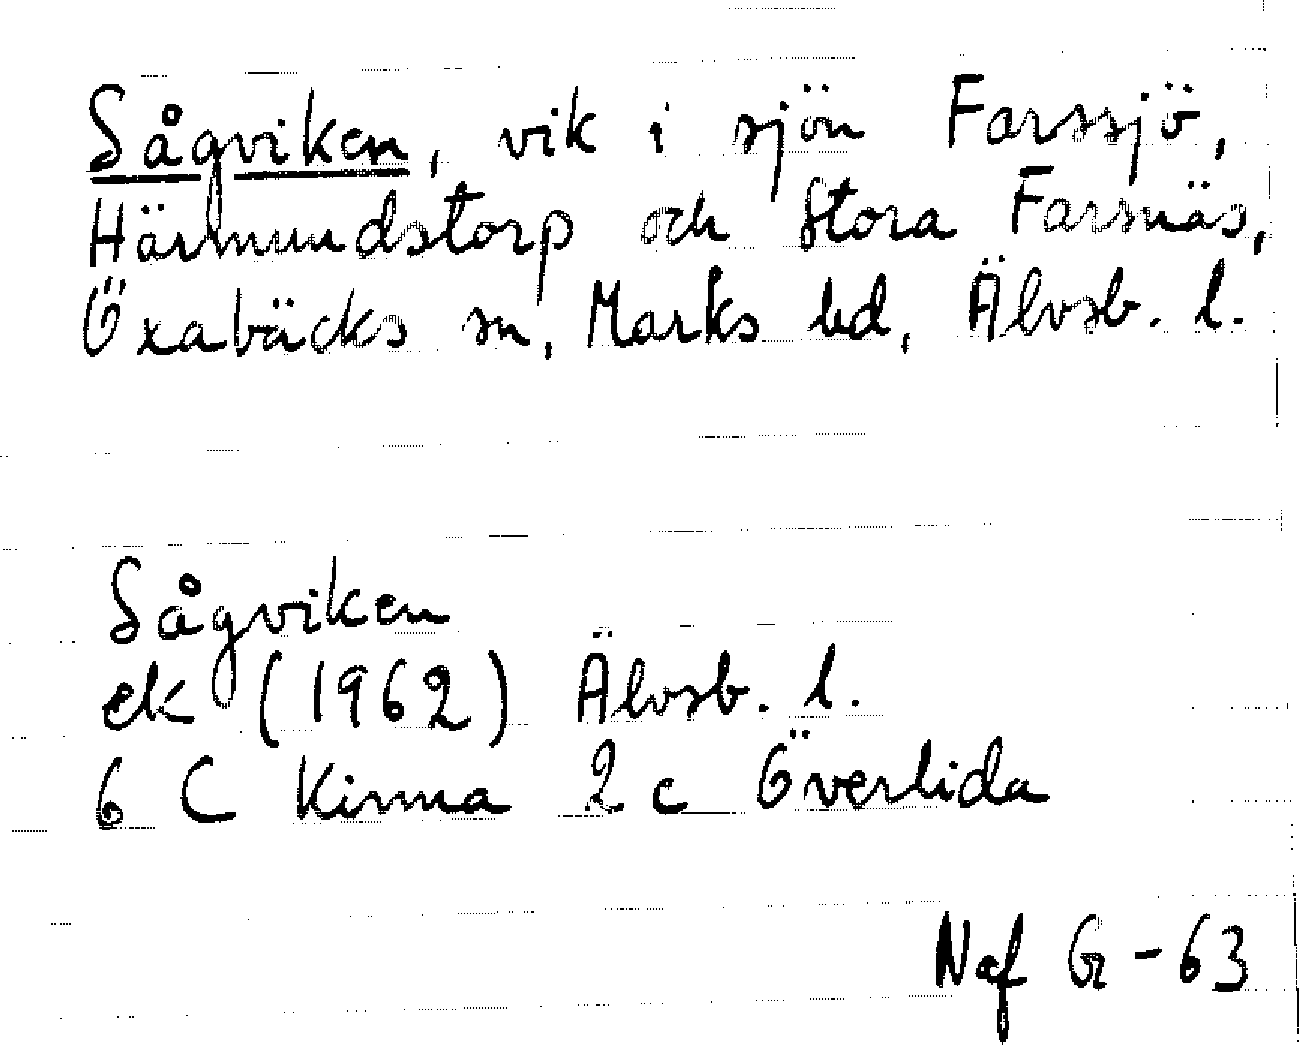 Sågviken, vik i sjön Farssjö,
Härmundstorp och Stora Farsnäs,
Öxabäcks sn, Marks hd, Älvsb. l.
Sågviken
ek (1962) Älvsb. l.
6 C Kinna 2 c Överlida
Naf G-63